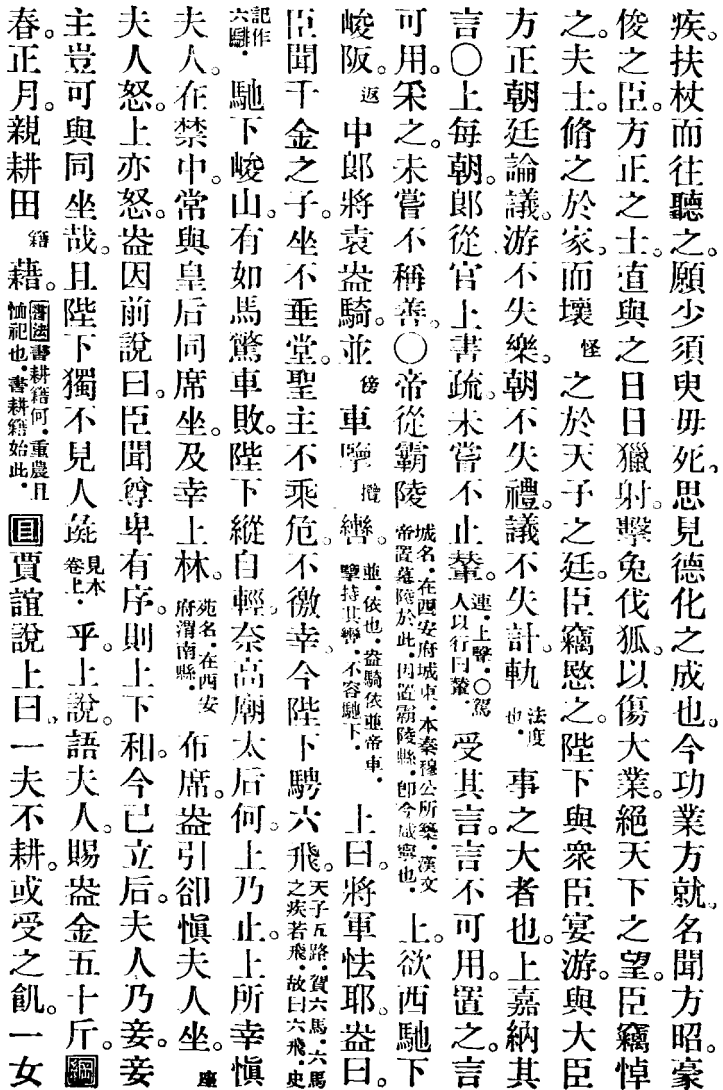 疾。扶杖而往聽之。願少須臾毋死。思見德化之成也。今功業方就。名聞方昭。豪
俊之臣。方正之士。直與之日日獵射。擊兔伐狐。以傷大業。絕天下之望。臣竊悼
之。夫士。脩之於家。而壞怪之於天子之廷。臣竊愍之。陛下與衆臣宴游。與大臣
方正朝廷論議。游不失樂。朝不失禮。議不失計。軌法度也。事之大者也。上嘉納其
言〇上每朝。郎從官上書疏。未嘗不止輦。連。上聲。〇駕人以行曰輦。受其言。言不可用。置之。言
可用。采之。未嘗不稱善。〇帝從霸陵城名。在西安府城東。本秦穆公所築。漢文帝置墓陵於此。因置霸陵縣。卽今咸寧也。上欲西馳下
峻阪。返中郎將袁盎騎。並傍車擥攬轡。並。依也。盎騎依並帝車。擥持其轡。不容馳下。上曰。將軍怯耶。盎曰。
臣聞千金之子。坐不垂堂。聖主不乘危。不徼幸。今陛下騁六飛。天子五路。駕六馬。六馬之疾若飛。故曰六飛。史
記作六騑。馳下峻山。有如馬驚車敗。陛下縱自輕。奈高廟太后何。上乃止。上所幸愼
夫人。在禁中。常與皇后同席坐。及幸上林。苑名。在西安府渭南縣。布席。盎引卻愼夫人坐。座
夫人怒。上亦怒。盎因前說曰。臣聞尊卑有序。則上下和。今已立后。夫人乃妾。妾
主豈可與同坐哉。且陛下獨不見人彘見本卷上。乎。上說。語夫人。賜盎金五十斤。綱
春。正月。親耕田籍藉。書法書耕籍何。重農且恤祀也。書耕籍始此。目賈誼說上曰。一夫不耕。或受之飢。一女